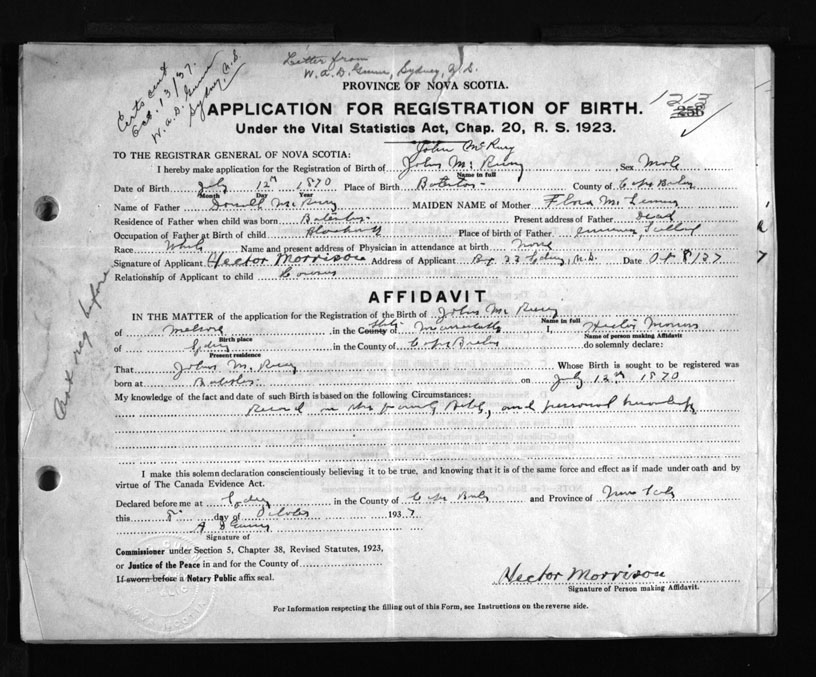 Letter from
W.A.D. Gunn, Sydney, N.S.
Oct. 13/37.
W.A.D. Gunn
Sydney N.S.
PROVINCE OF NOVA SCOTIA.
APPLICATION FOR REGISTRATION OF BIRTH.
1213
Under the Vital Statistics Act, Chap. 20, R. S. 1923.
John McRury
TO THE REGISTRAR GENERAL OF NOVA SCOTIA:
I hereby make application for the Registration of Birth of John McRury Sex Male
Name in full
Date of Birth July 12th 1870 Place of Birth County of Cape Breton
Month Day Year
Name of Father McRury MAIDEN NAME of Mother Flora
Residence of Father when child was born Present address of Father Dead
Occupation of Father at Birth of child Place of Birth of Father
Race White Name and present address of Physician in attendance at birth none
Signature of Applicant Hector Morrison Address of Applicant Box 23 Sydney, N.S. Date Oct 8/37
Relationship of Applicant to child Cousin
AFFIDAVIT
IN THE MATTER of the application for the Registration of the Birth of John McRury
Name in full
of in the County of I, Hector Morrison
Birth place Name of person making Affidavit
of Sydney in the County of Cape Breton do solemnly declare:
Present residence
That John McRury Whose Birth is sought to be registered was
born at on July 12th 1870
My knowledge of the fact and date of such Birth is based on the following Circumstances:
Record in the family Bible, and personal knowledge
I make this solemn declaration conscientiously believing it to be true, and knowing that it is of the same force and effect as if made under oath and by
virtue of The Canada Evidence Act.
Declared before me at Sydney in the County of Cape Breton and Province of Nova Scotia
this 8th day of October 1937
Signature of
Commissioner under Section 5, Chapter 38, Revised Statutes, 1923,
or Justice of the Peace in and for the County of
If sworn before a Notary Public affix seal.
Hector Morrison
Signature of Person making Affidavit.
For Information respecting the filling out of this Form, see Instructions on the reverse side.